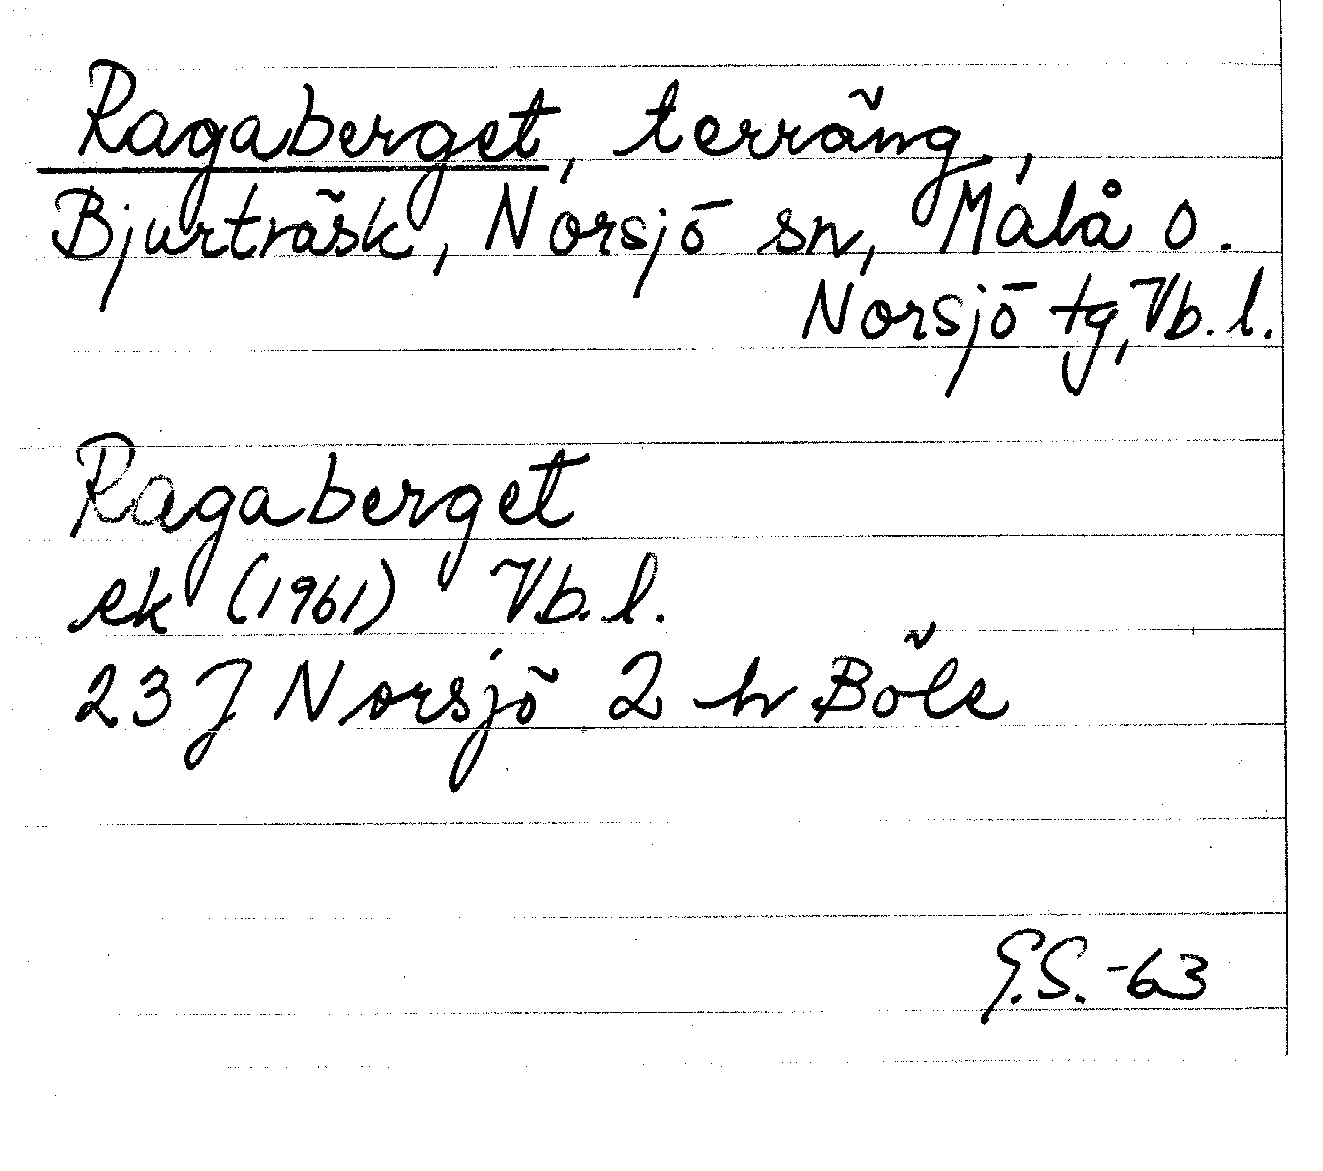 Ragaberget, terräng,
Bjurträsk, Norsjö sn, Malå o.
Norsjö tg, Vb. l.
Ragaberget
ek (1961) Vb. l.
23 J Norsjö 2 h Böle
G.S. -63